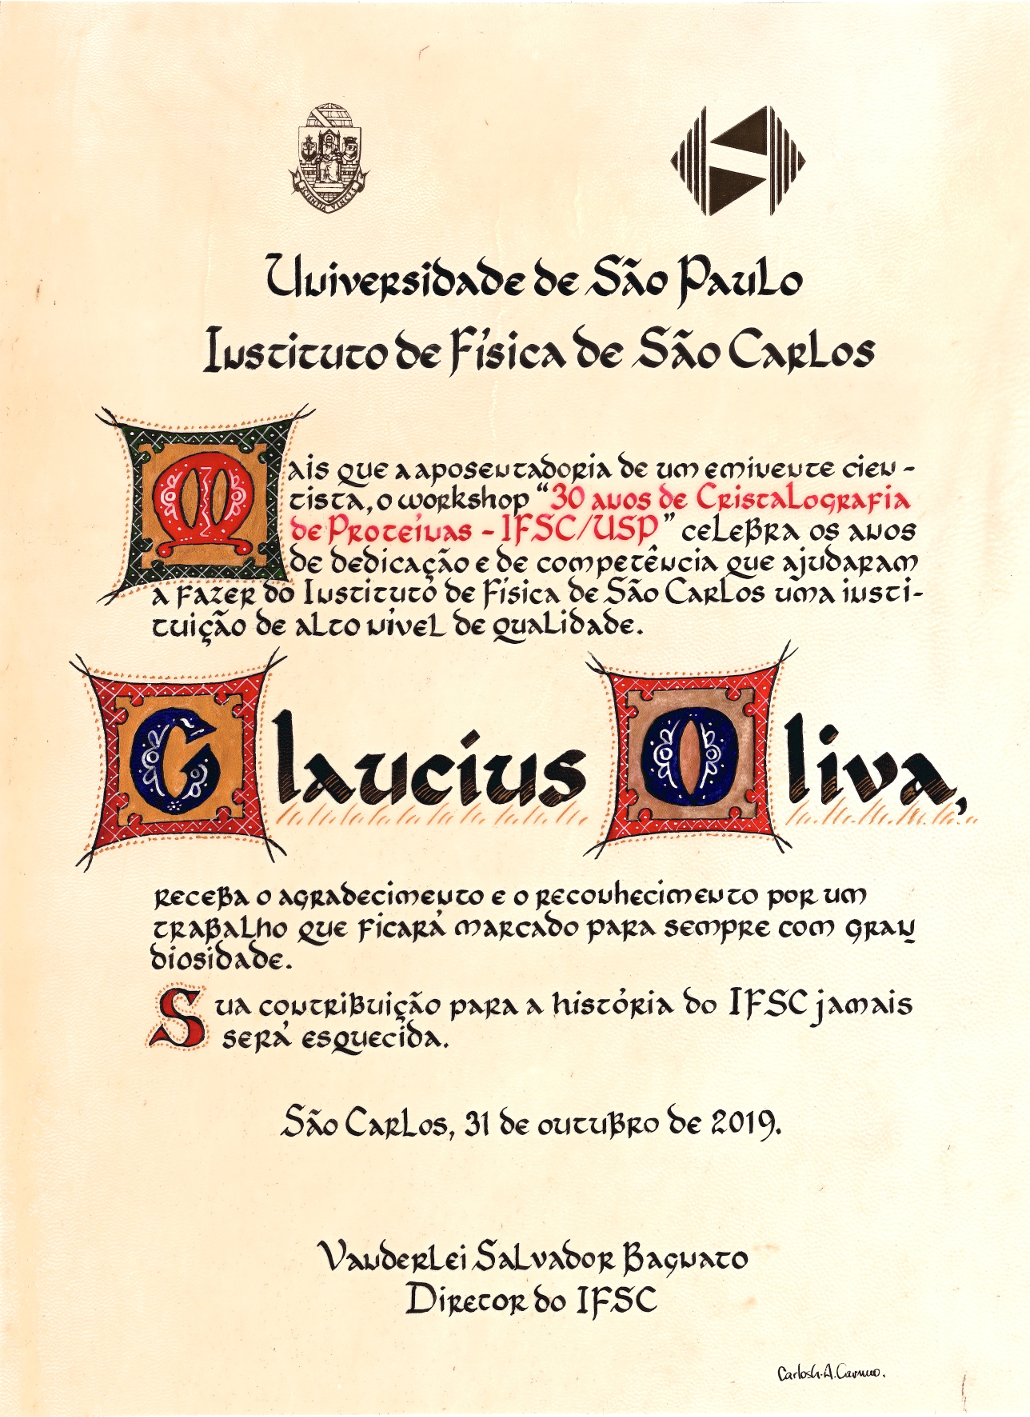 SCIENTIA VINCES
Universidade de São Paulo
Instituto de Física de São Carlos
Mais que a aposentadoria de um eminente cien-
tista, o workshop “30 anos de Cristalografia
de Proteínas - IFSC/USP” celebra os anos
de dedicação e de competência que ajudaram
a fazer do Instituto de Física de São Carlos uma insti-
tuição de alto nível de qualidade.
Glaucius Oliva,
receba o agradecimento e o reconhecimento por um
trabalho que ficará marcado para sempre com gran
diosidade.
Sua contribuição para a história do IFSC jamais
será esquecida.
São Carlos, 31 de outubro de 2019.
Vanderlei Salvador Bagnato
Diretor do IFSC